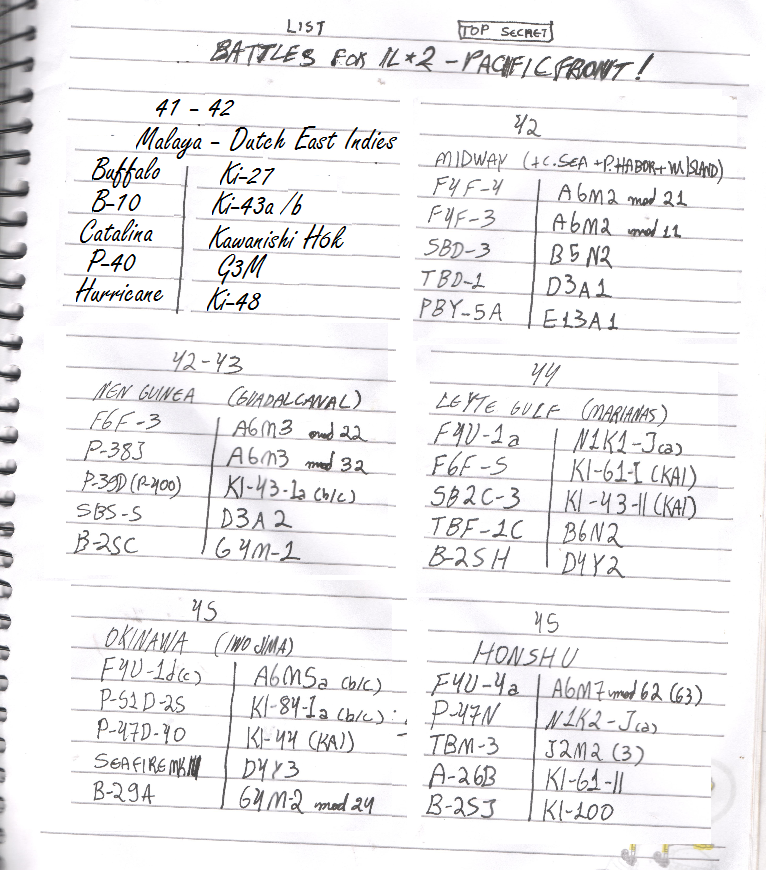 LIST
TOP SECRET
BATTLES FOR IL*2 - PACIFIC FRONT!
41 - 42
Malaya - Dutch East Indies
Buffalo Ki-27
B-10 Ki-43a/b
Catalina Kawanishi H6k
P-40 G3M
Hurricane Ki-48
42
MIDWAY (+C.SEA+P.HABOR+W.ISLAND)
F4F-4 A6M2 mod 21
F4F-3 A6M2 mod 11
SBD-3 B5N2
TBD-1 D3A1
PBY-5A E13A1
42-43
NEN GUINEA (GUADALCANAL)
F6F-3 A6M3 mod 22
P-38J A6M3 mod 32
P-39D (P-400) KI-43-Ia (b/c)
SBS-5 D3A2
B-25C G4M-1
44
LEYTE GULF (MARIANAS)
F4U-1a N1K1-J(a)
F6F-5 KI-61-I (KAI)
SB2C-3 KI-43-II (KAI)
TBF-1C B6N2
B-25H D4Y2
45
OKINAWA (IWO JIMA)
F4U-1d(c) A6M5a (b/c)
P-51D-25 KI-84-Ia (b/c)
P-47D-40 KI-44 (KAI)
SEAFIRE MK III D4Y3
B-29A G4M-2 mod 24
45
HONSHU
F4U-4a A6M7 mod 62 (63)
P-47N N1K2-J(a)
TBM-3 J2M2 (3)
A-26B KI-61-II
B-25J KI-100